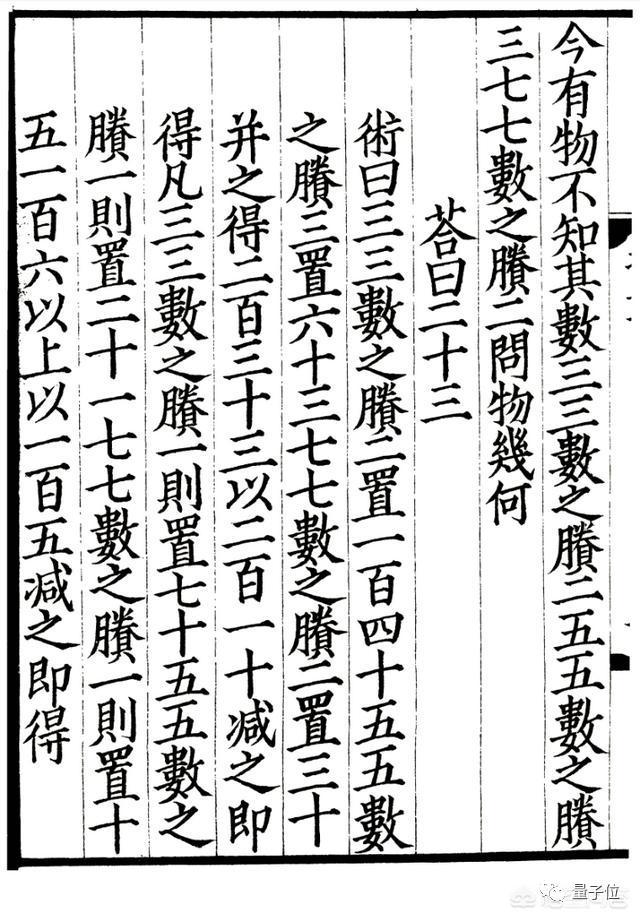 今有物不知其數三三數之賸二五五數之賸
三七七數之賸二問物幾何
荅曰二十三
術曰三三數之賸二置一百四十五五數
之賸三置六十三七七數之賸二置三十
并之得二百三十三以二百一十减之即
得凡三三數之賸一則置七十五五數之
賸一則置二十一七七數之賸一則置十
五一百六以上以一百五减之即得
量子位